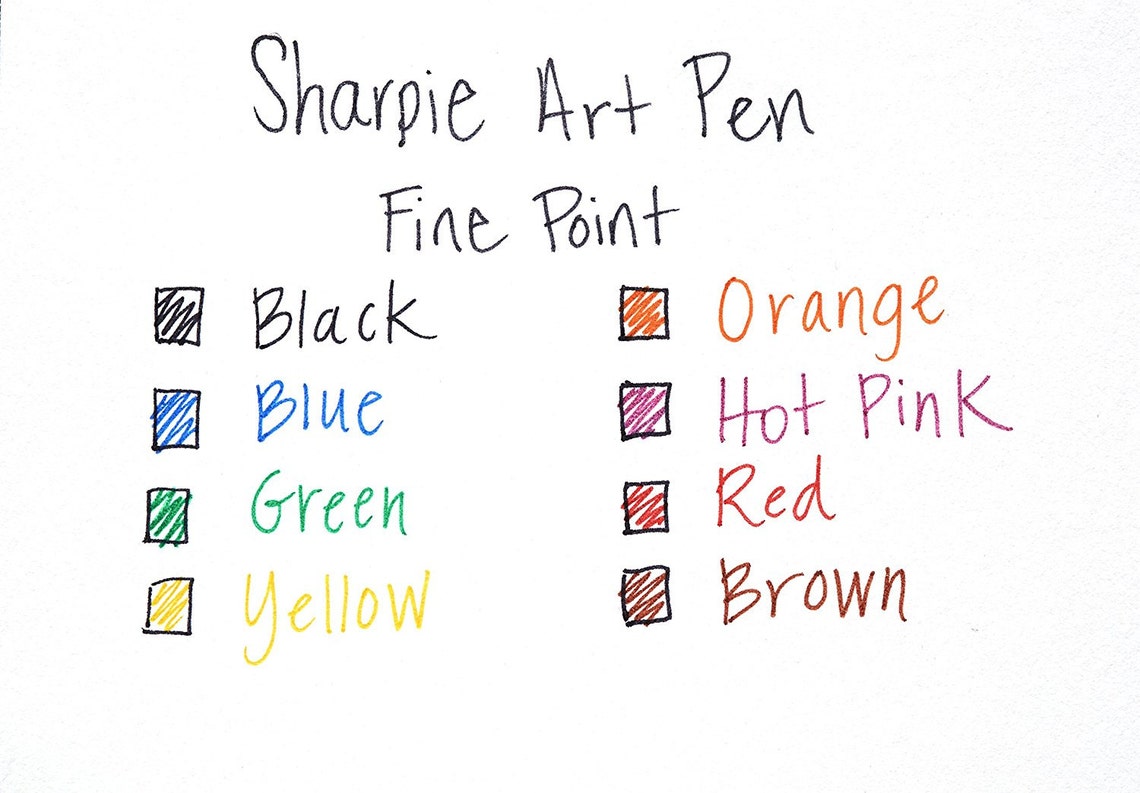 Sharpie Art Pen
Fine Point
Black
Blue
Green
Yellow
Orange
Hot Pink
Red
Brown